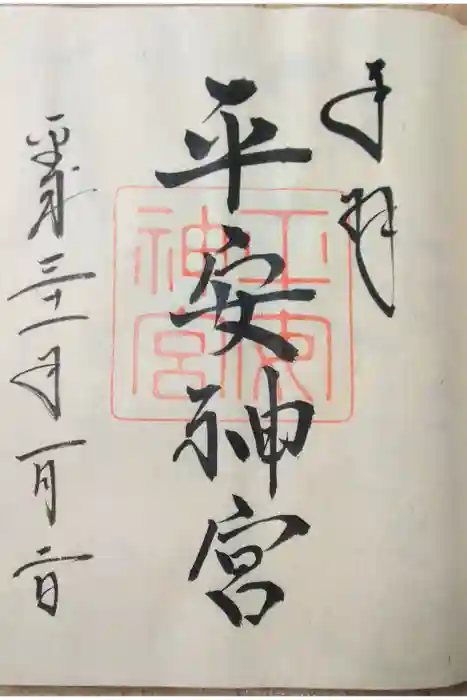 奉拝
平安神宮
神宮
平成三十一年一月二日